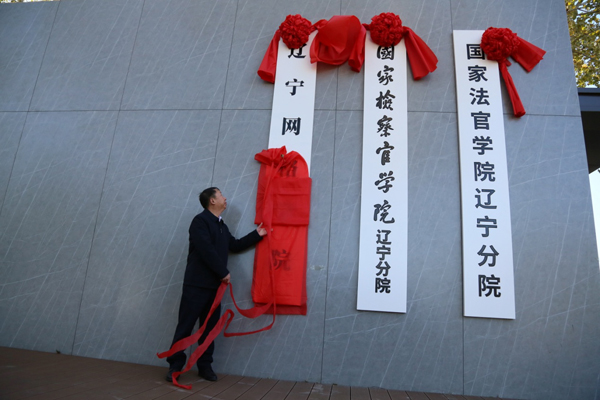 辽宁网
院
國家檢察官学院辽宁分院
国家法官学院辽宁分院